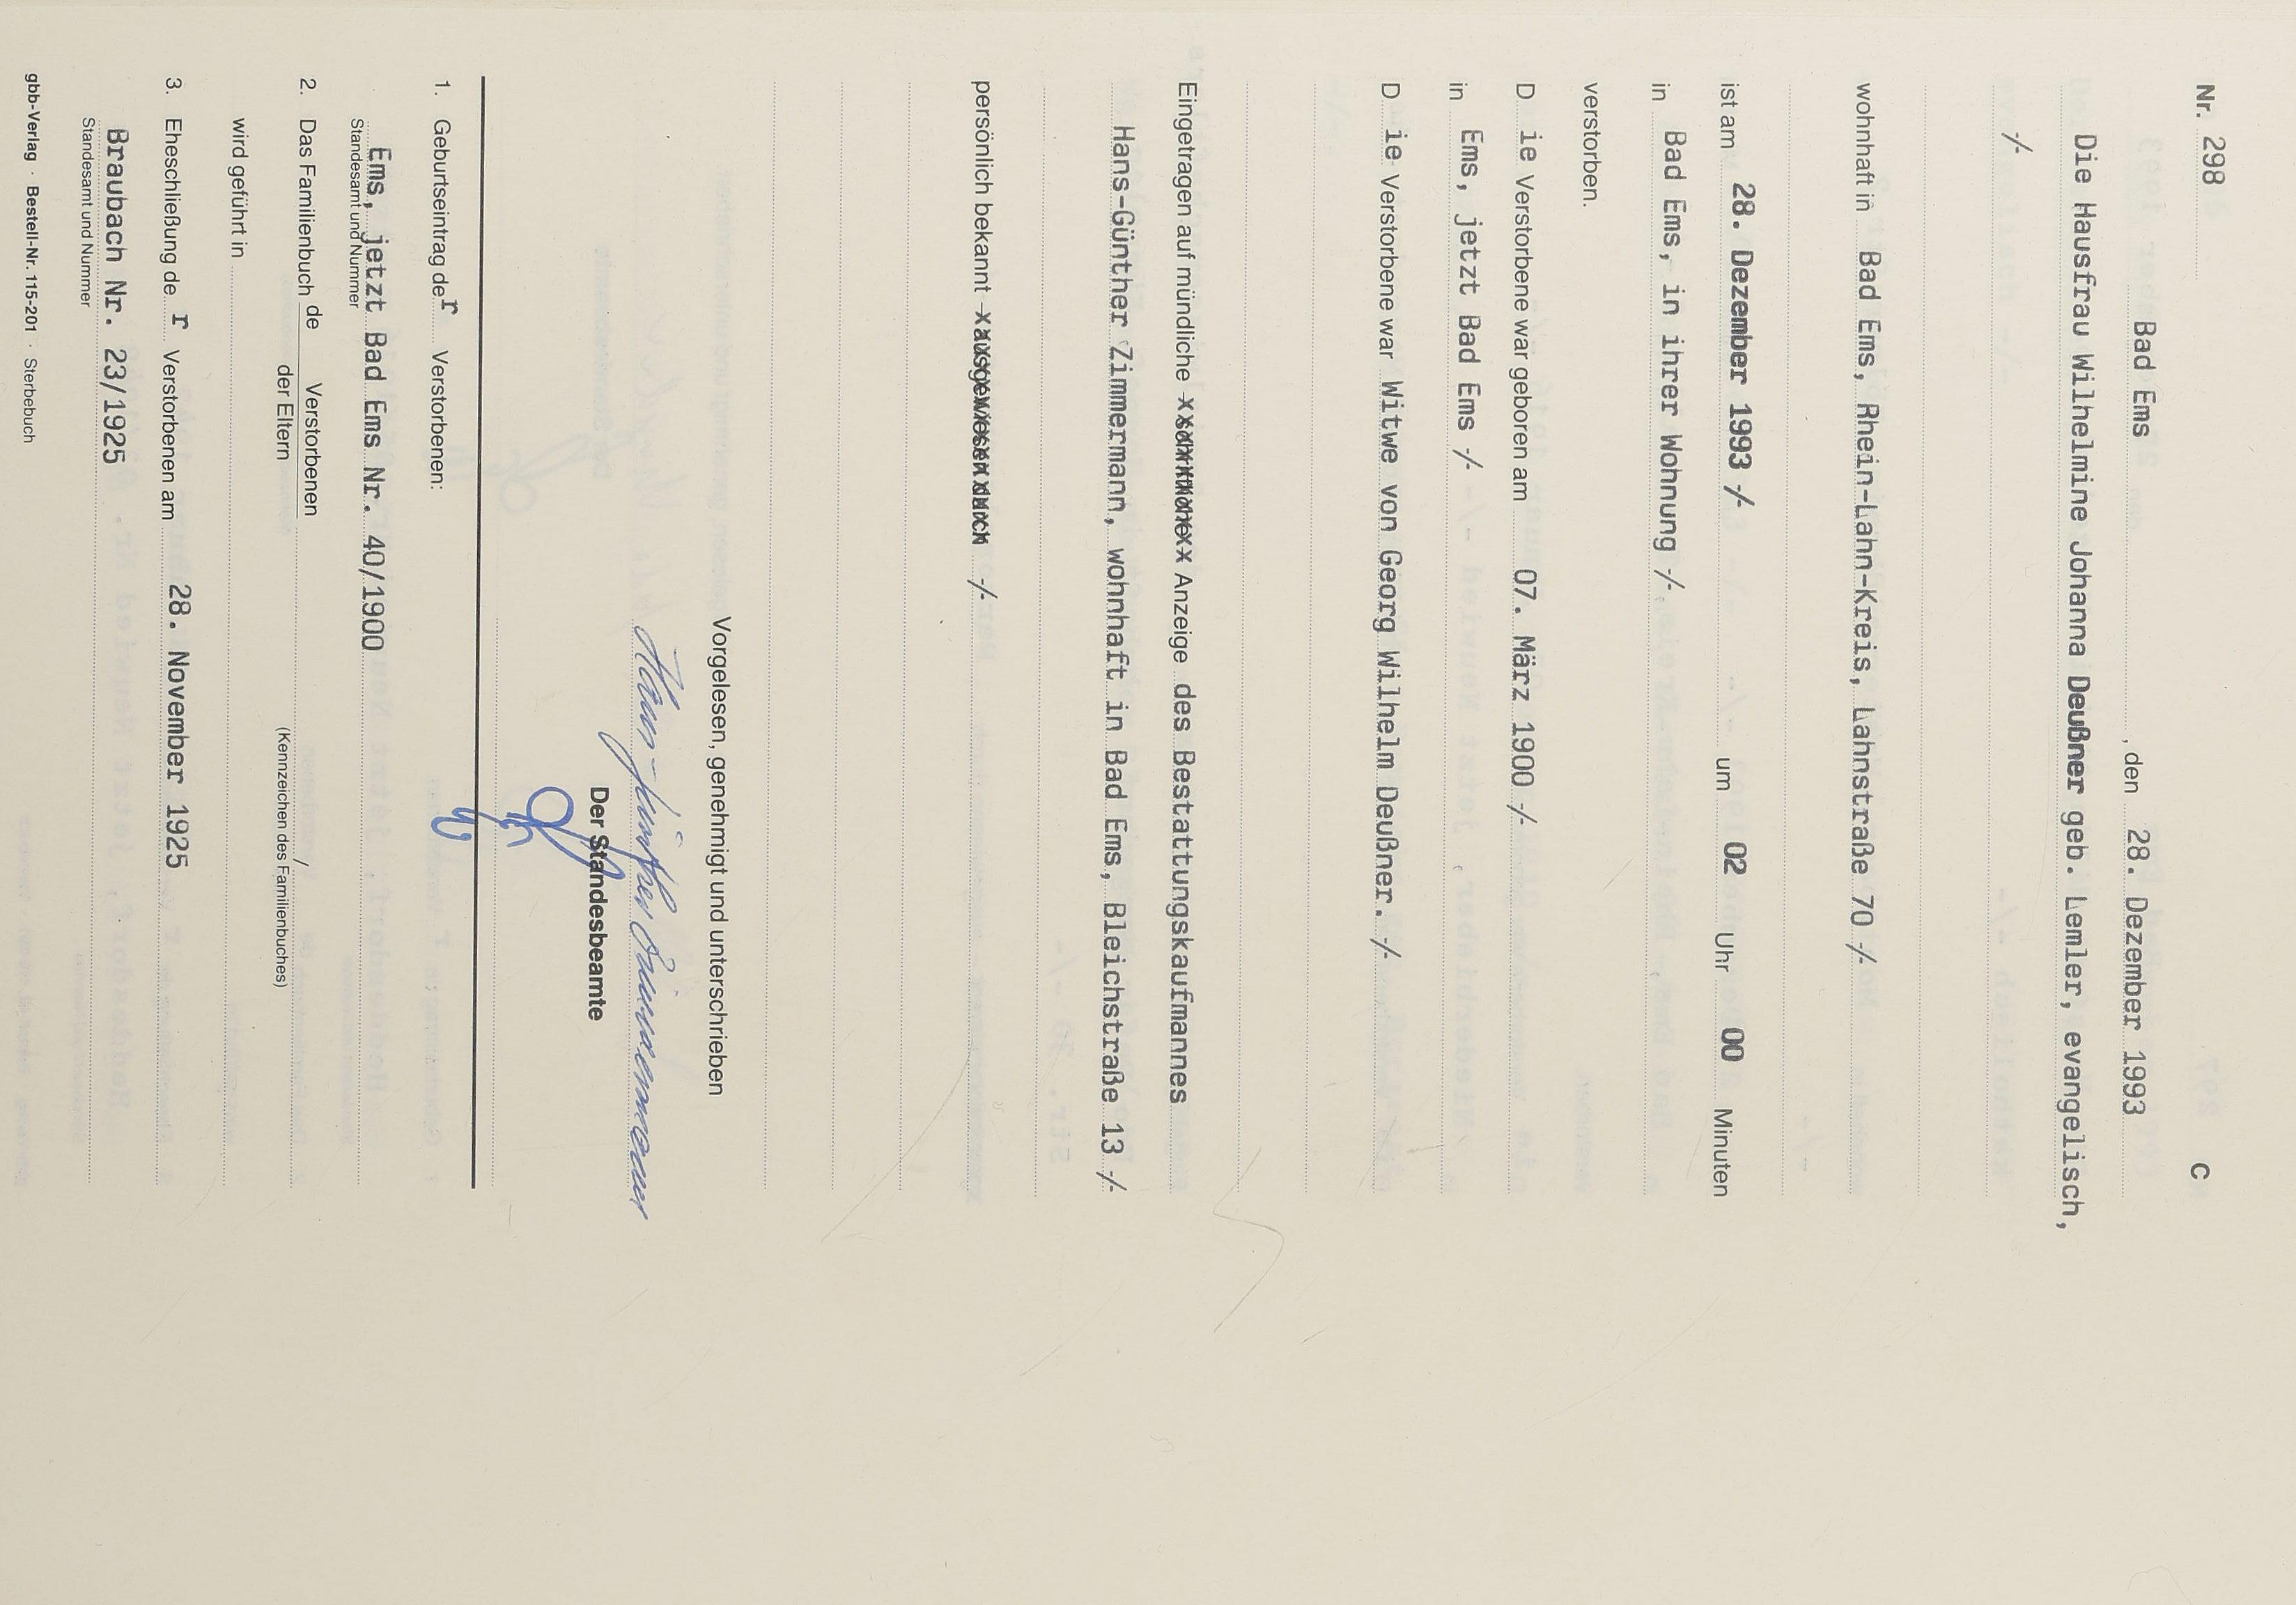 Nr. 298 C
Bad Ems , den 28. Dezember 1993
Die Hausfrau Wilhelmine Johanna Deußner geb. Lemler, evangelisch,
-/-
wohnhaft in Bad Ems, Rhein-Lahn-Kreis, Lahnstraße 70 -/-
ist am 28. Dezember 1993 -/- um 02 Uhr 00 Minuten
in Bad Ems, in ihrer Wohnung -/-
verstorben.
D ie Verstorbene war geboren am 07. März 1900 -/-
in Ems, jetzt Bad Ems -/-
D ie Verstorbene war Witwe von Georg Wilhelm Deußner. -/-
Eingetragen auf mündliche schriftliche Anzeige des Bestattungskaufmannes
Hans-Günther Zimmermann, wohnhaft in Bad Ems, Bleichstraße 13 -/-
persönlich bekannt ausgewiesen durch -/-
Vorgelesen, genehmigt und unterschrieben
Hans-Günther Zimmermann
Der Standesbeamte
1. Geburtseintrag der Verstorbenen:
Ems, jetzt Bad Ems Nr. 40/1900
Standesamt und Nummer
2. Das Familienbuch de Verstorbenen /
der Eltern (Kennzeichen des Familienbuches)
wird geführt in
3. Eheschließung de r Verstorbenen am 28. November 1925
Braubach Nr. 23/1925
Standesamt und Nummer
gbb-Verlag · Bestell-Nr. 115-201 · Sterbebuch